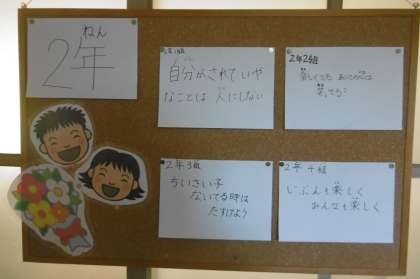 ねん
2年
2年1組
自分がされていや
なことは 人にしない
2年2組
楽しくても
2年3組
ちいさい子
ないてる時は
たすけよう
2年4組
じぶんも楽しく
みんなも楽しく